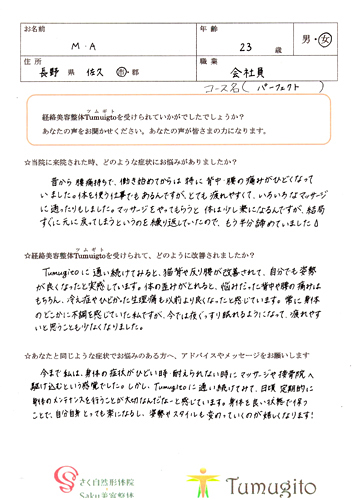 お名前
M・A
年齢
23 歳
男・女
住所
長野 県 佐久 市・郡
職業
会社員
コース名(パーフェクト)
ツムギト
経絡美容整体Tumugitoを受けられていかがでしたでしょうか?
あなたの声をお聞かせください。あなたの声が皆さまの力になります。
☆当院に来院された時、どのような症状にお悩みがありましたか?
昔から腰痛持ちで、働き始めてからは特に背中・腰の痛みがひどくなって
いました。体を使う仕事でもあるんですが、とても疲れやすくて、いろいろなマッサージ
に通ったりもしました。マッサージをやってもらうと体は少し楽になるんですが、結局
すぐに元に戻ってしまうというのを繰り返していたので、もう半分諦めていました
ツムギト
☆経絡美容整体Tumuigtoを受けられて、どのように改善されましたか?
Tumugitoに通い続けてみると、猫背や反り腰が改善されて、自分でも姿勢
が良くなったと実感しています。体の歪みがとれると、悩みだった背中や腰の痛みは
もちろん、冷え症やひどかった生理痛も以前より良くなったと感じています。常に身体
のどこかに不調を感じていた私ですが、今では夜ぐっすり眠れるようになって、疲れやす
いと思うことも少なくなりました。
☆あなたと同じような症状でお悩みのある方へ、アドバイスやメッセージをお願いします
今まで私は、身体の症状がひどい時・耐えられない時にマッサージや接骨院へ
駆け込むという感覚でした。しかし、Tumugitoに通い続けてみて、日頃、定期的に
身体のメンテナンスを行うことが大切なんだなーと感じています。身体を良い状態で保つ
ことで、自分自身とっても楽になるし、姿勢やスタイルも変わっていくのが嬉しくなります!
さく自然形体院
Saku美容整体
Tumugito